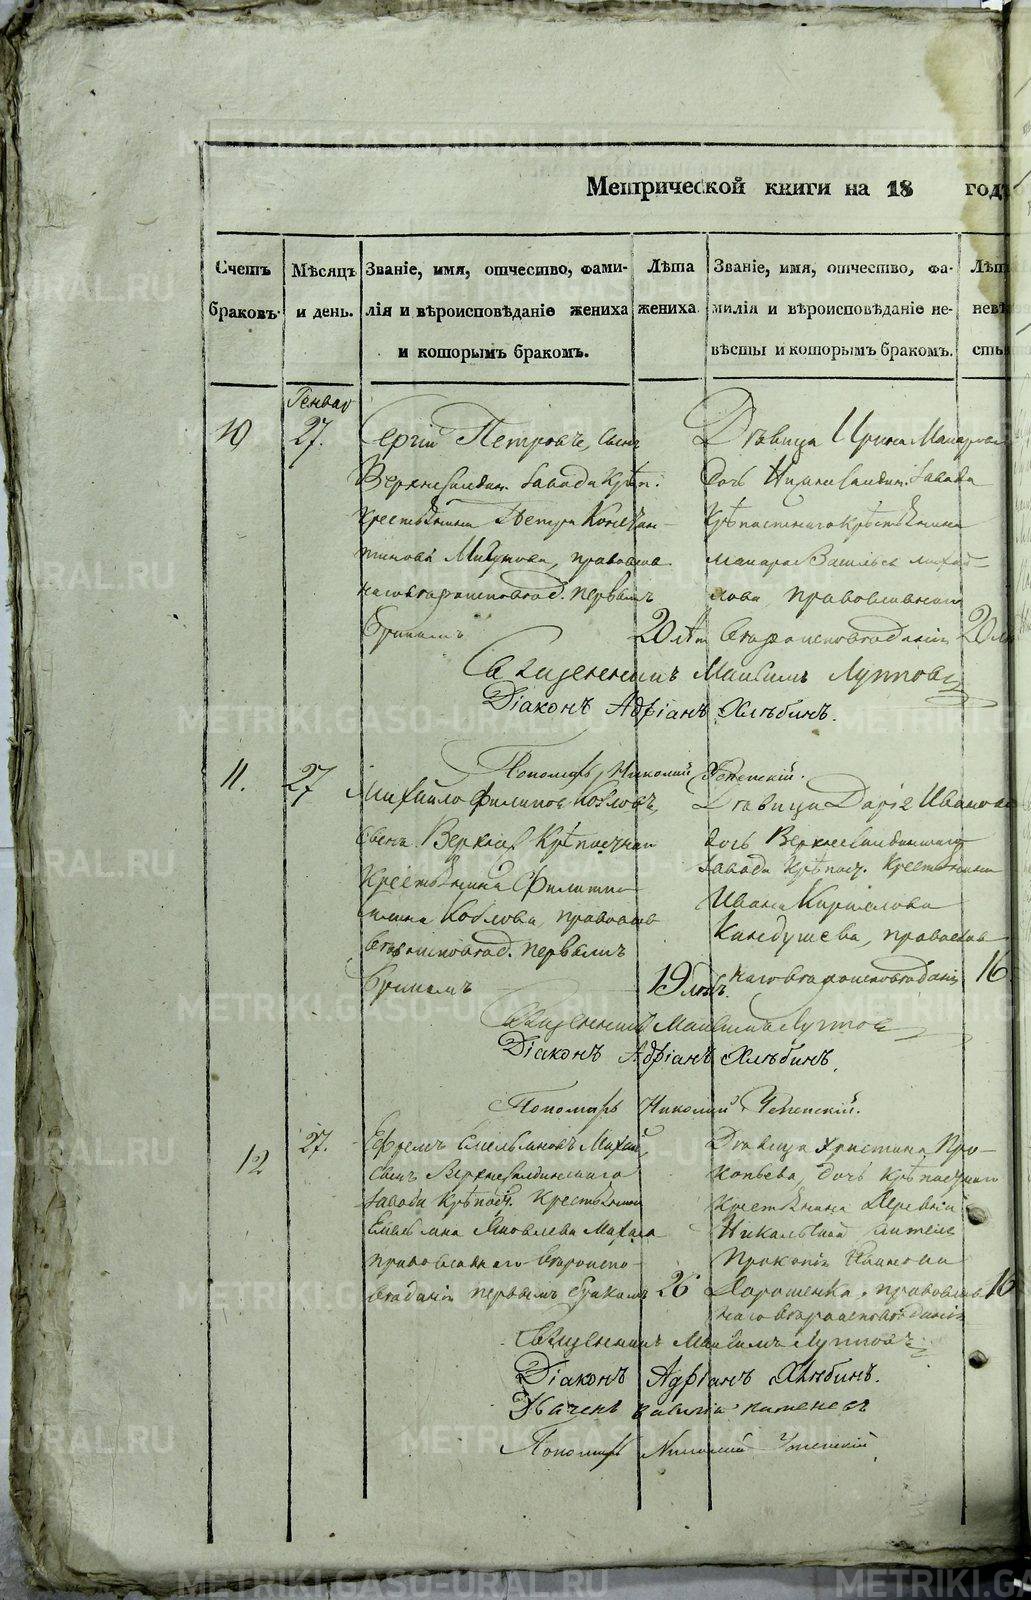 Метрической книги на 18 год
Счетъ браковъ.
Мѣсяцъ и день.
Званіе, имя, отчество, фами-
лія и вѣроисповѣданіе жениха
и которымъ бракомъ.
Лѣта жениха
Званіе, имя, отчество, фа-
милія и вѣроисповѣданіе не-
вѣсты и которымъ бракомъ.
Лѣт
невѣ
сты
Генвар
10
27.
Сергій Петровъ, сынъ
завода Крѣп.
Крестьянина Петра
православ
наго вѣроисповѣд. первымъ
бракомъ
20 лѣт
Дѣвица Ирина Макарова
дочь завода
Крѣпостнаго Крестьянина
Макара
православнаго
вѣроисповѣданія
20
Священникъ Максимъ Лупповъ
Діаконъ Адріанъ Хлѣбинъ.
Пономарь Николай Успенскій.
11.
27
Михайло Филипов Козловъ,
сынъ Крѣпостнаго
Крестьянина Филиппа
Козлова, православ
вѣроисповѣд. первымъ
бракомъ
19 лѣтъ.
Дѣвица Дарія Иванова
дочь Верхнесалдинскаго
завода Крѣпост. Крестьянина
Ивана Кирилова
православ
наго вѣроисповѣданія
16
Священникъ Максимъ Луппов
Діаконъ Адріанъ Хлѣбинъ.
Пономарь Николай Успенскій.
12
27.
Ефремъ Емельяновъ
сынъ Верхнесалдинскаго
завода Крѣпост. Крестьянина
Емельяна Яковлева
православнаго вѣроиспо-
вѣданія первымъ бракомъ
26
Дѣвица Христина Про-
копьева, дочь Крѣпостнаго
Крестьянина Деревни
Никольской жителя
Прокопія
православ
наго вѣроисповѣданія
16
Священникъ Максимъ Лупповъ
Діаконъ Адріанъ Хлѣбинъ.
Пономарь Николай Успенскій
METRIKI.GASO-URAL.RU